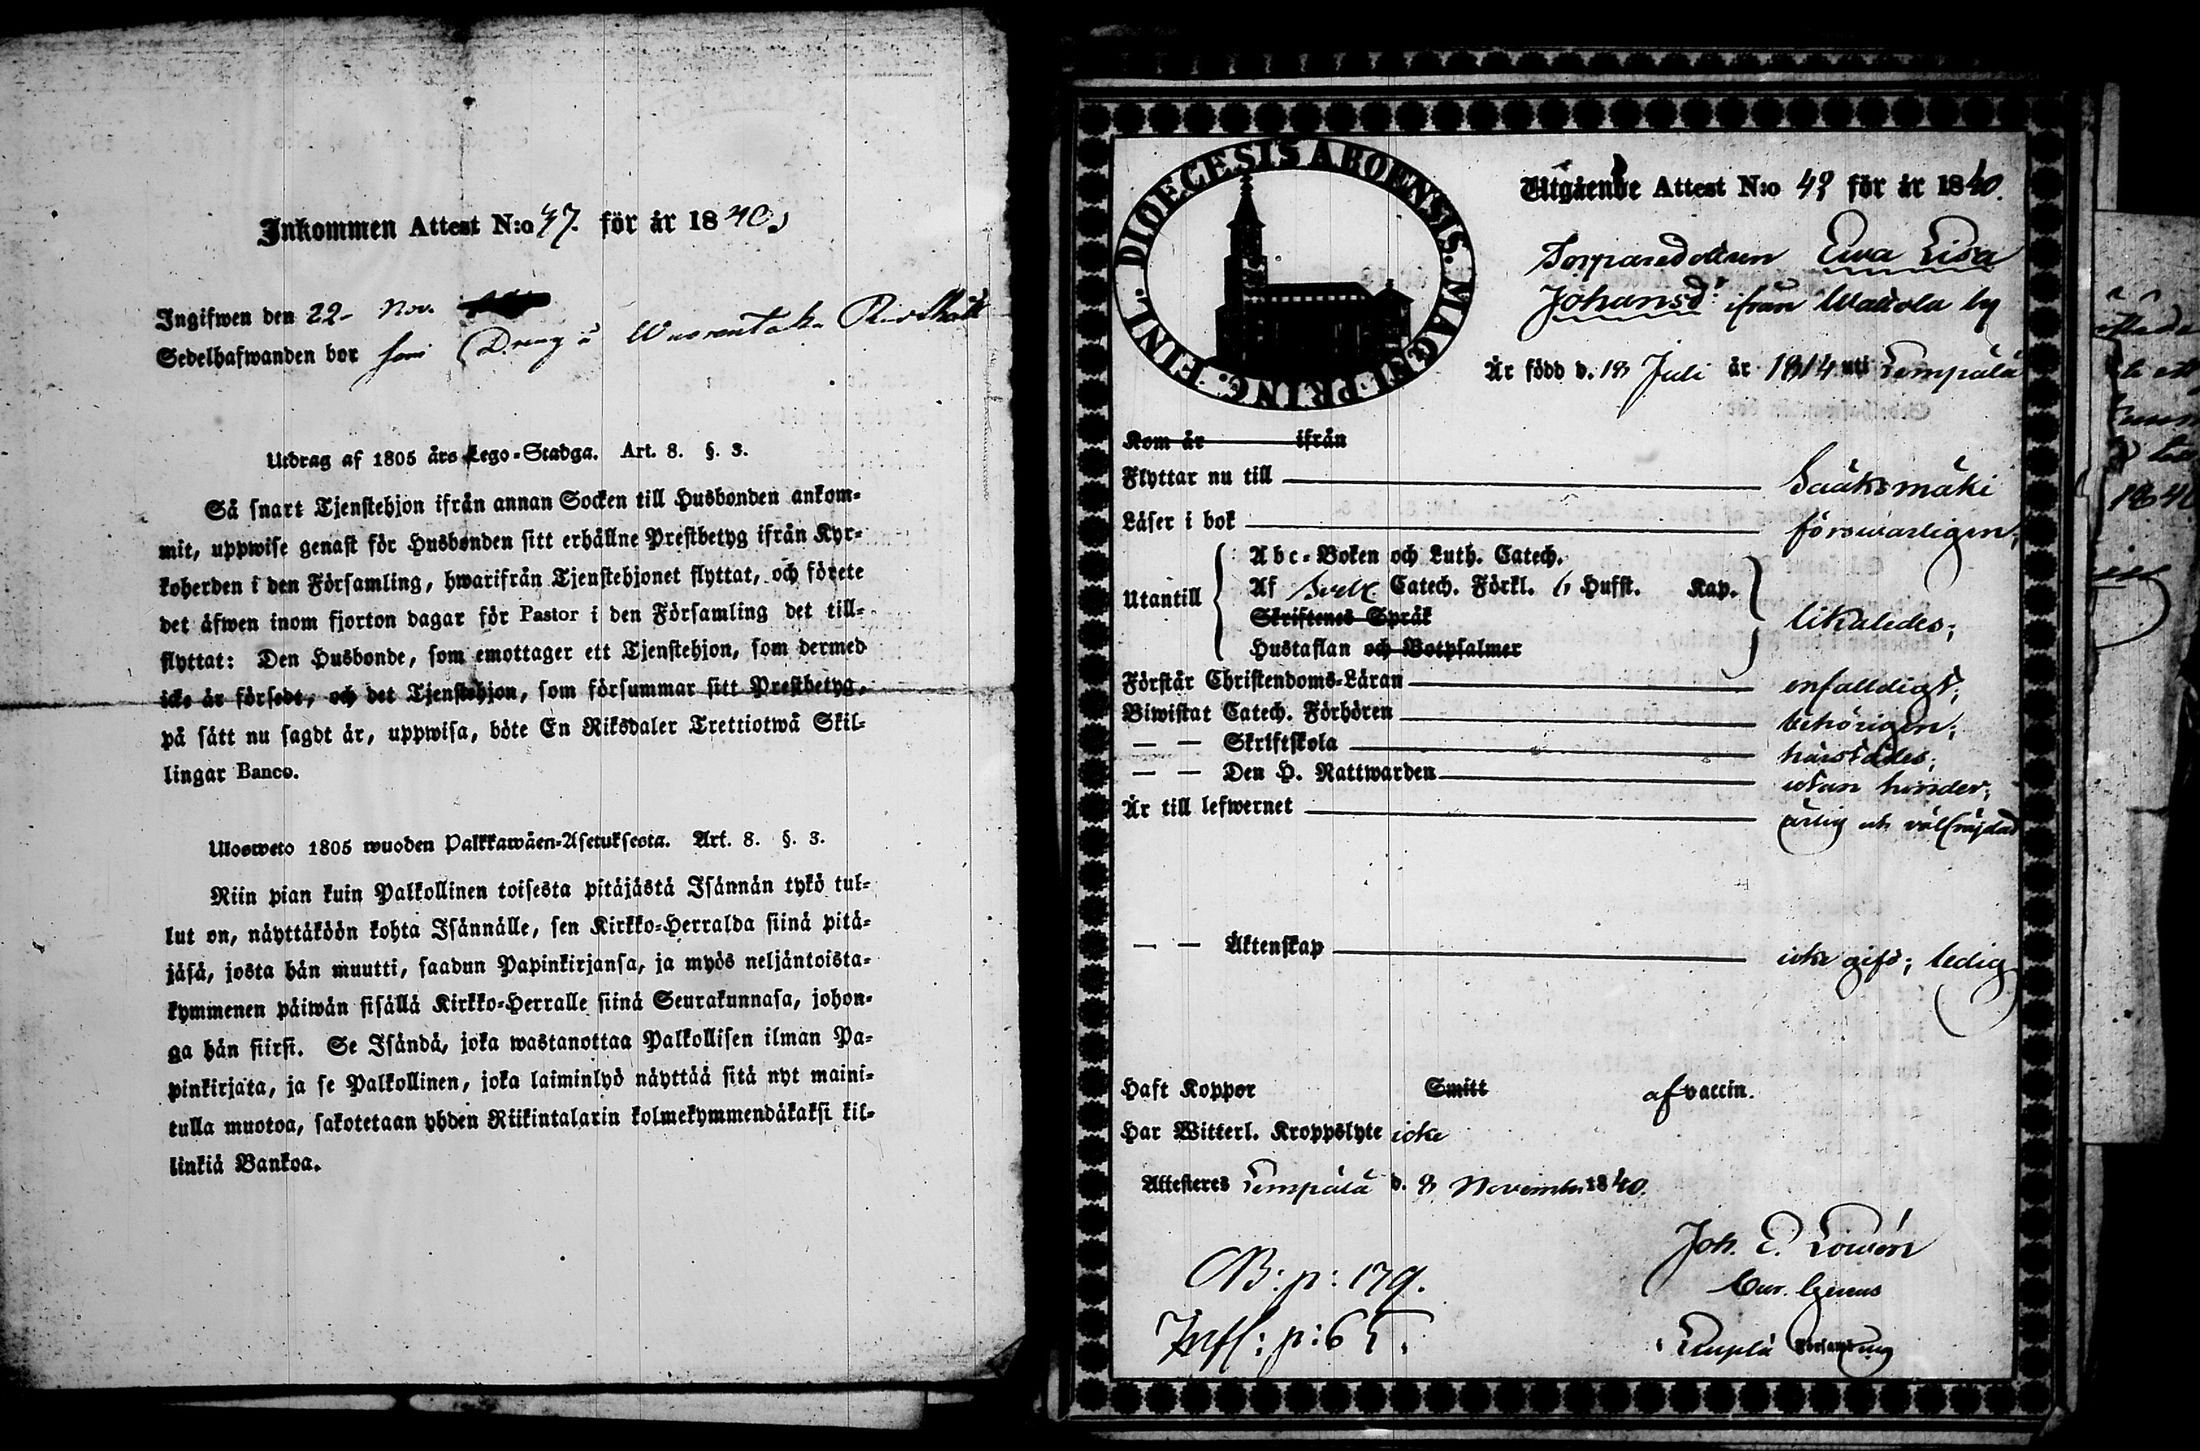 Inkommen Attest N:o 47. för år 1840.
Ingifwen den 22 Nov.
Sedelhafwanden bor
Utdrag af 1805 års Lego-Stadga. Art. 8. §. 3.
Så snart Tjenstehjon ifrån annan Socken till Husbonden ankom-
mit, uppwise genast för Husbonden sitt erhållne Prestbetyg ifrån Kyr-
koherden i den Församling, hwarifrån Tjenstehjonet flyttat, och förete
det äfwen inom fjorton dagar för Pastor i den Församling det till-
flyttat: Den Husbonde, som emottager ett Tjenstehjon, som dermed
icke är försedt, och det Tjenstehjon, som försummar sitt Prestbetyg,
på sätt nu sagdt är, uppwisa, böte En Riksdaler Trettiotwå Skil-
lingar Banco.
Ulosweto 1805 wuoden Palkkawäen-Asetuksesta. Art. 8. §. 3.
Niin pian kuin Palkollinen toisesta pitäjästä Isännän tykö tul-
lut on, näyttäköön kohta Isännälle, sen Kirkko-Herralda siinä pitä-
jäsä, josta hän muutti, saadun Papinkirjansa, ja myös neljäntoista-
kymmenen päiwän sisällä Kirkko-Herralle siinä Seurakunnasa, johon-
ga hän siirsi. Se Isändä, joka wastanottaa Palkollisen ilman Pa-
pinkirjata, ja se Palkollinen, joka laiminlyö näyttää sitä nyt maini-
tulla muotoa, sakotetaan yhden Riikintalarin kolmekymmendäkaksi kil-
linkiä Bankoa.
DIOECESIS ABOENSIS. MAGNI PRINC. FINL.
Utgående Attest N:o 49 för år 1840.
Torparedottren Ewa Lisa
Johansdr ifrån Wallola by
Är född d. 18 Juli år 1814 uti Lempälä
Kom år ifrån
Flyttar nu till Sääksmäki
Läser i bok förswarligen;
Utantill
Abc-Boken och Luth. Catech.
Af Sveb. Catech. Förkl. 6 Hufst. Kap.
Skriftenes Språk
Hustaflan och Botpsalmer
likaledes;
Förstår Christendoms-Läran enfalldigt;
Biwistat Catech. Förhören behörigen;
— — Skriftskola härstädes;
— — Den H. Nattwarden utan hinder;
Är till lefwernet ärlig och välfrejdad
— — Äktenskap icke gift; ledig
Haft Koppor Smitt af vaccin.
Har Witterl. Kroppslyte icke
Attesteres Lempälä d. 9 November 1840.
Joh. E.
B: p: 179.
Infl: p: 65.